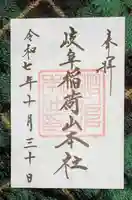 奉拝
岐阜稲荷山本社
令和七年十月三十日